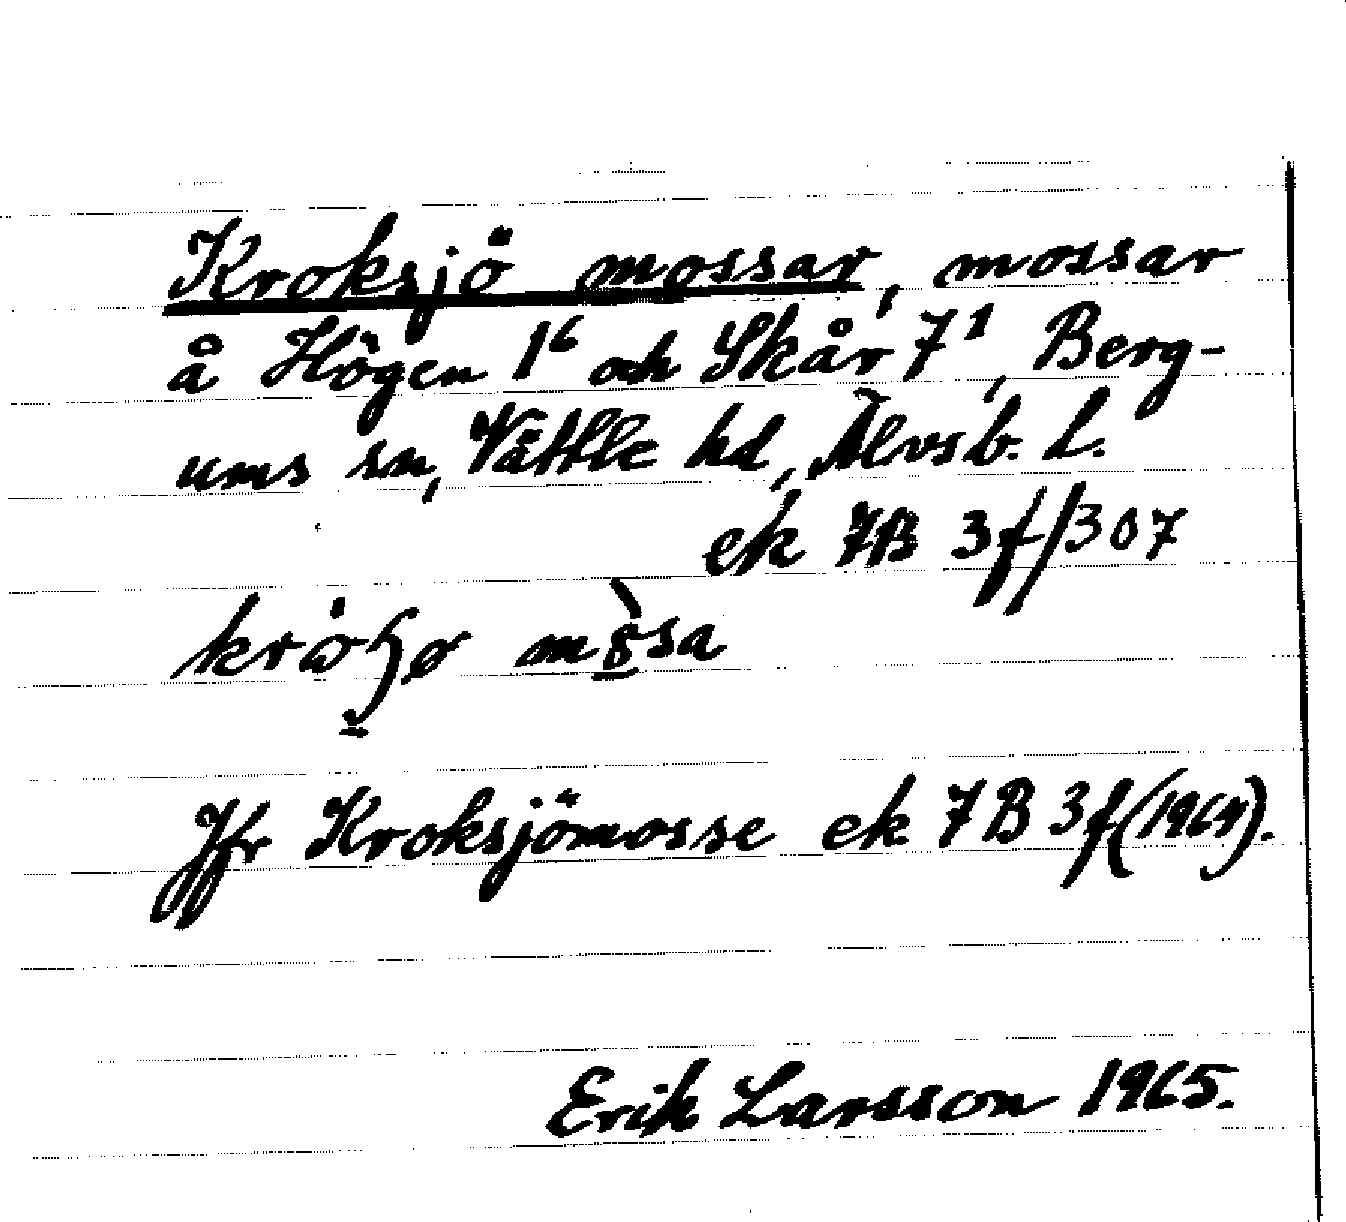 Kroksjö mossar, mossar
å Högen 1⁶ och Skår 7¹, Berg-
ums sn, Vättle hd, Älvsb. l.
ek 7B 3f/307
Jfr Kroksjömosse ek 7B 3f (1964).
Erik Larsson 1965.